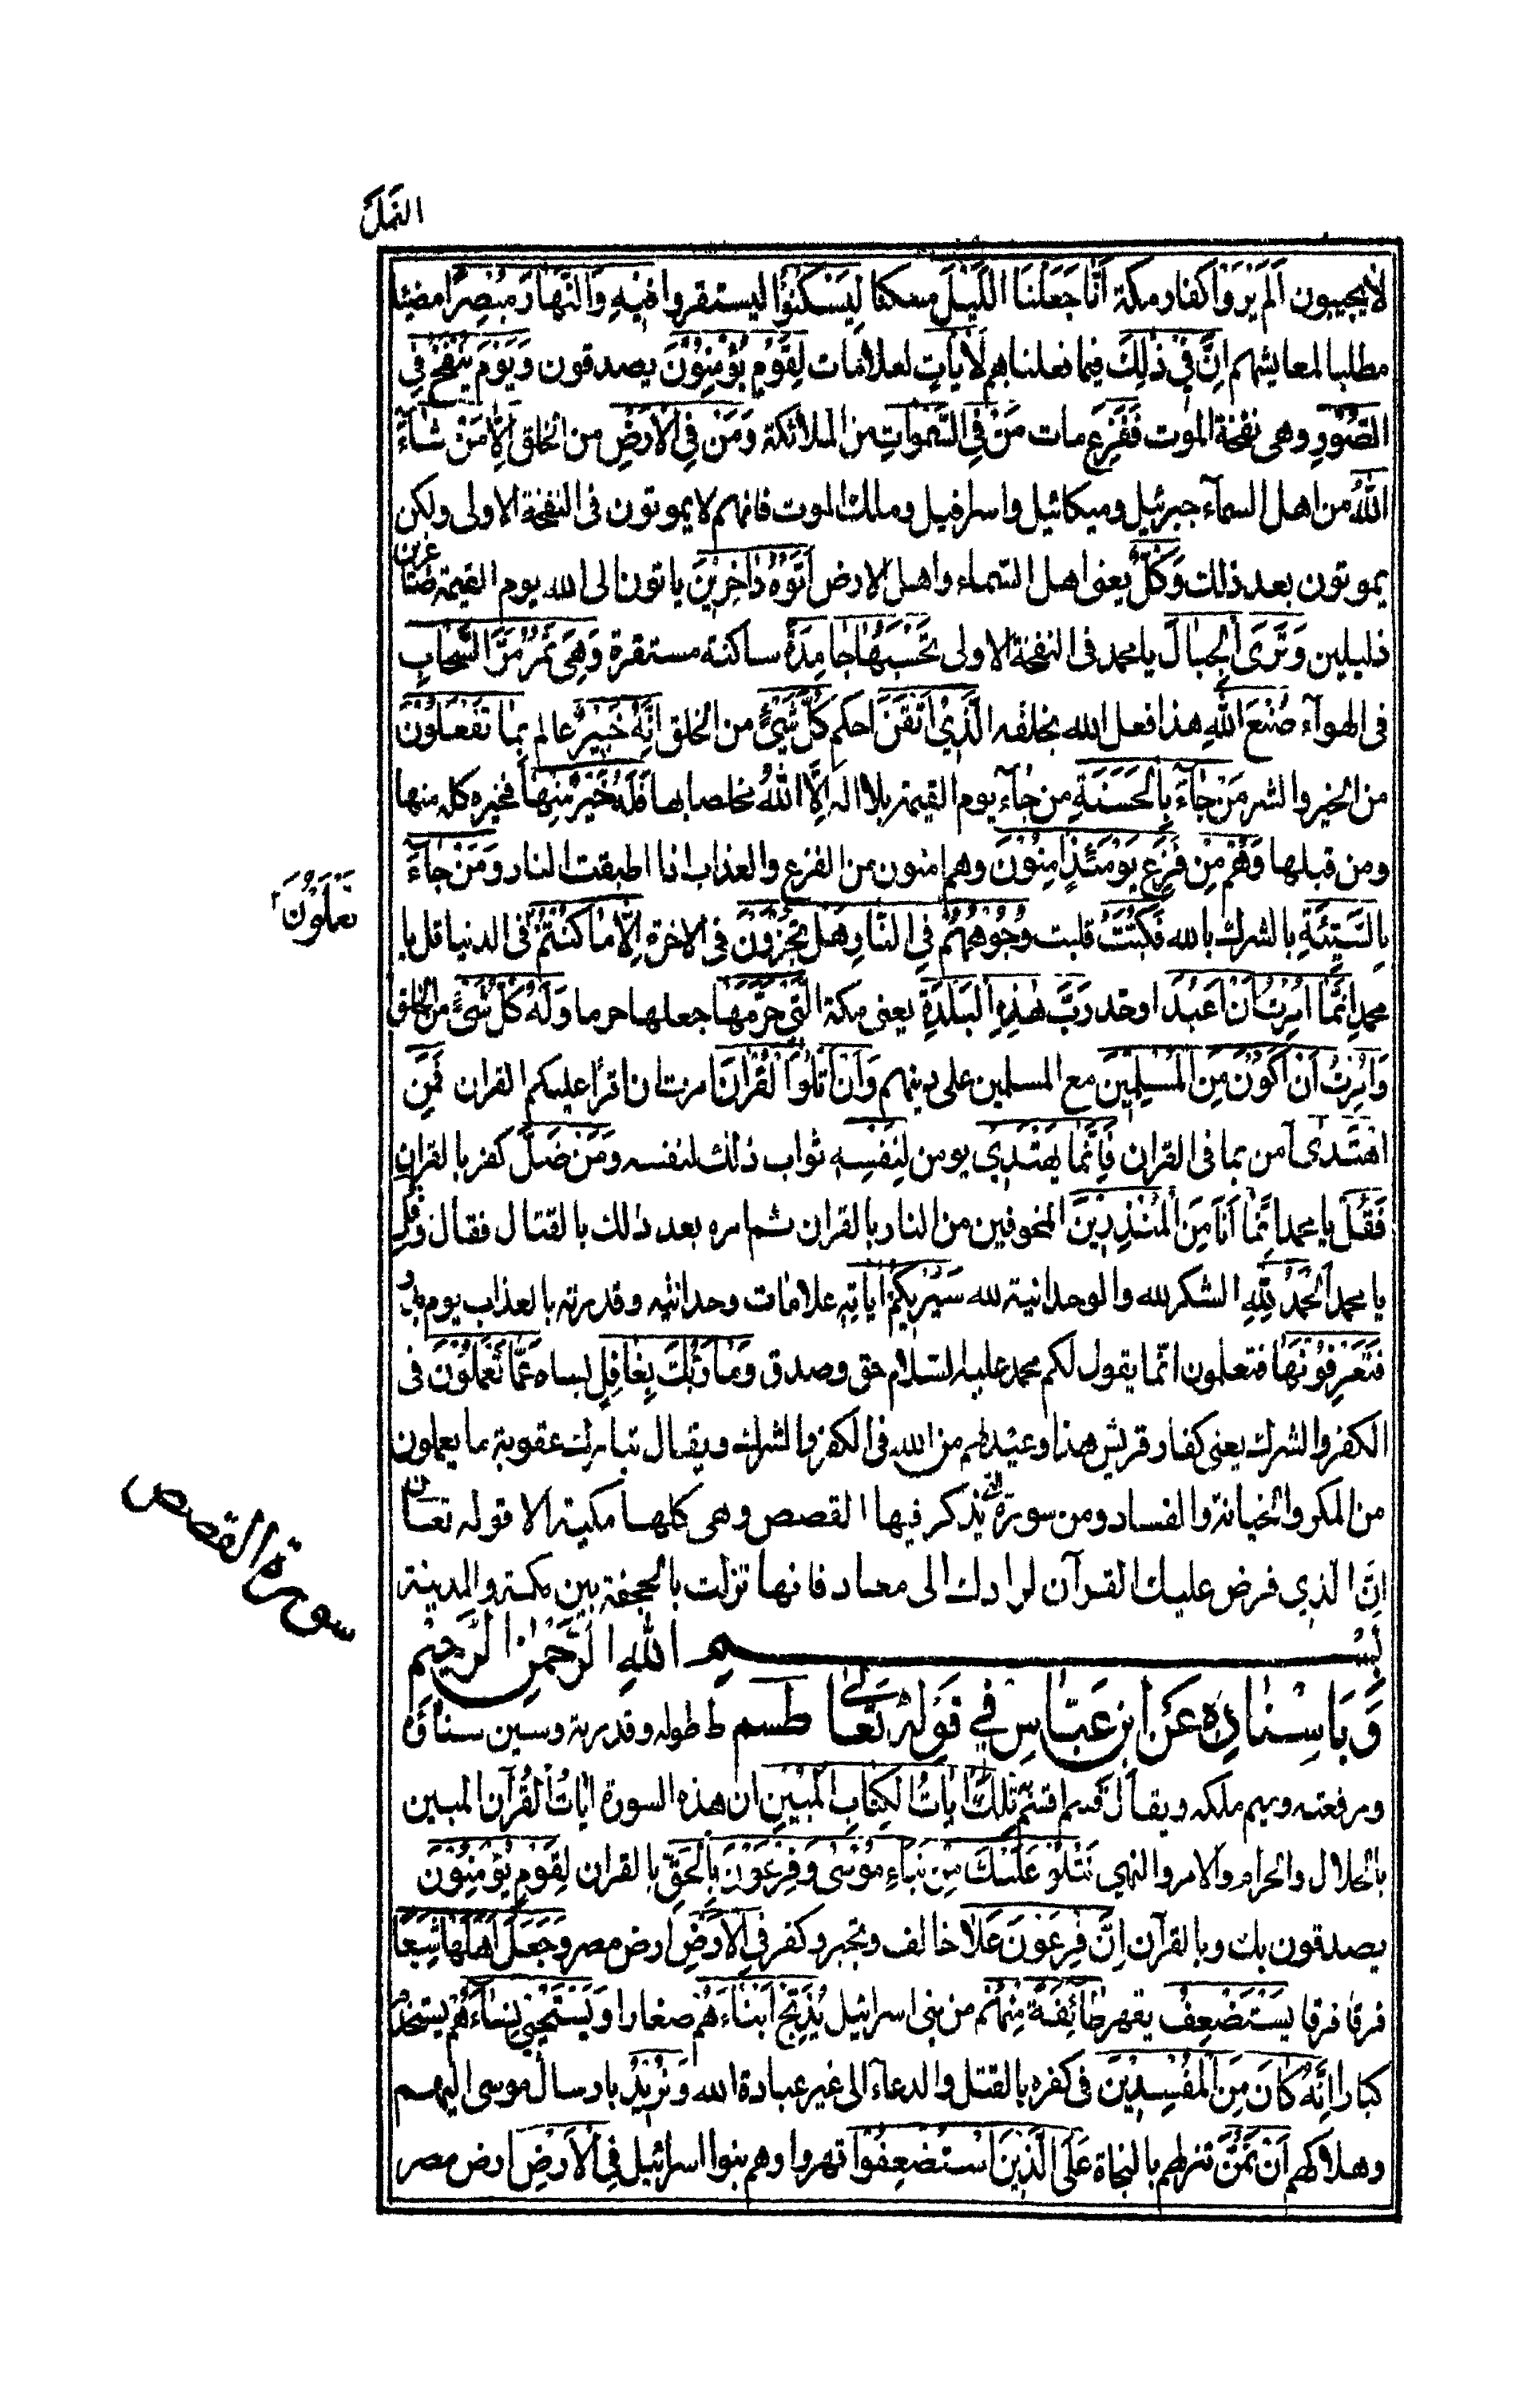 النمل
لا يجيبون اَلَمْ يَرَوْا كفار مكة اَنَّا جَعَلْنَا اللَّيْلَ مسكنا لِيَسْكُنُوْا ليستقروا فِيْهِ وَالنَّهَارَ مُبْصِرًا مضيئا
مطلبا لمعايشهم اِنَّ فِيْ ذٰلِكَ فيما فعلنا بهم لَاٰيَاتٍ لعلامات لِقَوْمٍ يُؤْمِنُوْنَ يصدقون وَيَوْمَ يُنْفَخُ فِي
الصُّوْرِ وهى نفخة الموت فَفَزِعَ مات مَنْ فِي السَّمٰوَاتِ من الملائكة وَمَنْ فِي الْاَرْضِ من الخلق اِلَّا مَنْ شَاءَ
اللّٰهُ من اهل السمآء جبرئيل وميكائيل واسرافيل وملك الموت فانهم لا يموتون فى النفخة الاولى ولكن
يموتون بعد ذلك وَكُلٌّ يعنى اهل السماء واهل الارض اَتَوْهُ دَاخِرِيْنَ ياتون الى الله يوم القيمة صاغرين
ذليلين وَتَرَى الْجِبَالَ يا محمد فى النفخة الاولى تَحْسَبُهَا جَامِدَةً ساكنة مستقرة وَهِيَ تَمُرُّ مَرَّ السَّحَابِ
فى الهوآء صُنْعَ اللّٰهِ هذا فعل الله بخلقه الَّذِيْ اَتْقَنَ احكم كُلَّ شَيْئٍ من الخلق اِنَّهٗ خَبِيْرٌ عالم بِمَا تَفْعَلُوْنَ
من الخير والشر مَنْ جَآءَ بِالْحَسَنَةِ من جآء يوم القيمة بلا اله اِلَّا اللّٰهُ مخلصا بها فَلَهٗ خَيْرٌ مِنْهَا فخيره كله منها
ومن قبلها وَهُمْ مِنْ فَزَعٍ يَوْمَئِذٍ اٰمِنُوْنَ وهم امنون من الفزع والعذاب اذا اطبقت النار وَمَنْ جَآءَ
بِالسَّيِّئَةِ بالشرك بالله فَكُبَّتْ قلبت وُجُوْهُهُمْ فِي النَّارِ هَلْ تُجْزَوْنَ فى الاخرة اِلَّا مَا كُنْتُمْ فى الدنيا قل يا
تَعْمَلُوْنَ
محمد اِنَّمَا اُمِرْتُ اَنْ اَعْبُدَ اوحد رَبَّ هٰذِهِ الْبَلْدَةِ يعنى مكة الَّتِيْ حَرَّمَهَا جعلها حرما وَلَهٗ كُلُّ شَيْءٍ من الخلق
وَاُمِرْتُ اَنْ اَكُوْنَ مِنَ الْمُسْلِمِيْنَ مع المسلمين على دينهم وَاَنْ اَتْلُوَا الْقُرْاٰنَ امرت ان اقرأ عليكم القران فَمَنِ
اهْتَدٰى آمن بما فى القران فَاِنَّمَا يَهْتَدِيْ يومن لِنَفْسِهٖ ثواب ذلك لنفسه وَمَنْ ضَلَّ كفر بالقران
فَقُلْ يا محمد اِنَّمَا اَنَا مِنَ الْمُنْذِرِيْنَ المخوفين من النار بالقران ثم امره بعد ذلك بالقتال فقال وَقُلِ
يا محمد الْحَمْدُ لِلّٰهِ الشكر لله والوحدانية لله سَيُرِيْكُمْ اٰيَاتِهٖ علامات وحدانيته وقدرته بالعذاب يوم بدر
فَتَعْرِفُوْنَهَا فتعلمون انّما يقول لكم محمد عليه السّلام حق وصدق وَمَا رَبُّكَ بِغَافِلٍ بساه عَمَّا تَعْمَلُوْنَ فى
الكفر والشرك يعنى كفار قريش هذا وعيد لهم من الله فى الكفر والشرك ويقال تبارك عقوبة ما يعملون
من المكر والخيانة والفساد ومن سورة التى يذكر فيها القصص وهى كلها مكية الا قوله تعالى
انّ الذي فرض عليك القرآن لرادك الى معاد فانها نزلت بالجحفة بين مكة والمدينة
سورة القصص
بِسْمِ اللّٰهِ الرَّحْمٰنِ الرَّحِيْمِ
وَبِاِسْنَادِهٖ عَنْ ابْنِ عَبَّاسٍ فِيْ قَوْلِهٖ تَعَالٰى طٰسم ط طوله وقدرية وسين سناؤه
ورفعته وميم ملكه ويقال قسم اقسم تِلْكَ اٰيَاتُ الْكِتَابِ الْمُبِيْنِ ان هذه السورة ايَاتُ الْقُرآن المبين
بالحلال والحرام والامر والنهي نَتْلُوْ عَلَيْكَ مِنْ نَبَاِء مُوْسٰى وَفِرْعَوْنَ بِالْحَقِّ بالقران لِقَوْمٍ يُؤْمِنُوْنَ
يصدقون بك وبالقرآن اِنَّ فِرْعَوْنَ عَلَا خالف وتجبر وكفر فِي الْاَرْضِ ارض مصر وَجَعَلَ اَهْلَهَا شِيَعًا
فرقا فرقا يَسْتَضْعِفُ يقهر طَائِفَةً مِنْهُمْ من بنى اسرائيل يُذَبِّحُ اَبْنَاءَهُمْ صغارا وَيَسْتَحْيِيْ نِسَاءَهُمْ يستخدم
كبارا اِنَّهٗ كَانَ مِنَ الْمُفْسِدِيْنَ فى كفره بالقتل والدعآء الى غير عبادة الله وَنُرِيْدُ بارسال موسى اليهم
وهلاكهم اَنْ نَمُنَّ بالنجاة عَلَى الَّذِيْنَ اسْتُضْعِفُوْا قهروا وهم بنوا اسرائيل فِي الْاَرْضِ ارض مصر